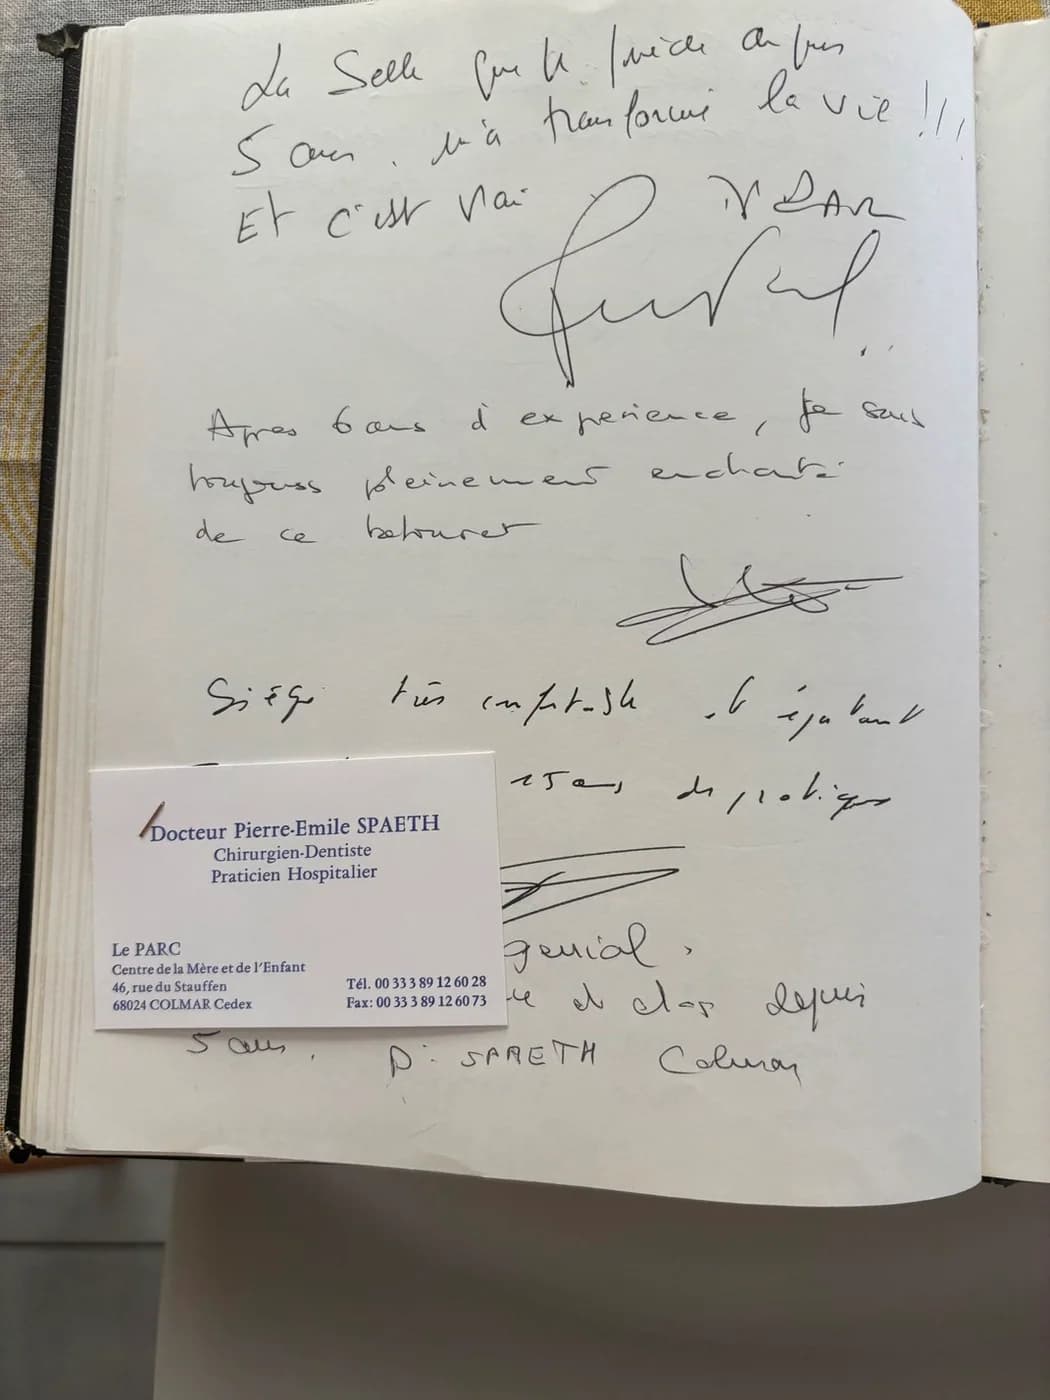 La Selle que je possède depuis
5 ans, m'a transformé la vie !!!
Et c'est vrai
Après 6 ans d'experience, je suis
toujours pleinement enchanté
de ce tabouret
Siège très confortable et épatant
15 ans de pratique
Docteur Pierre-Emile SPAETH
Chirurgien-Dentiste
Praticien Hospitalier
Le PARC
Centre de la Mère et de l'Enfant
46, rue du Stauffen
68024 COLMAR Cedex
Tél. 00 33 3 89 12 60 28
Fax: 00 33 3 89 12 60 73
genial.
de dos depuis
5 ans. Dr SPAETH Colmar